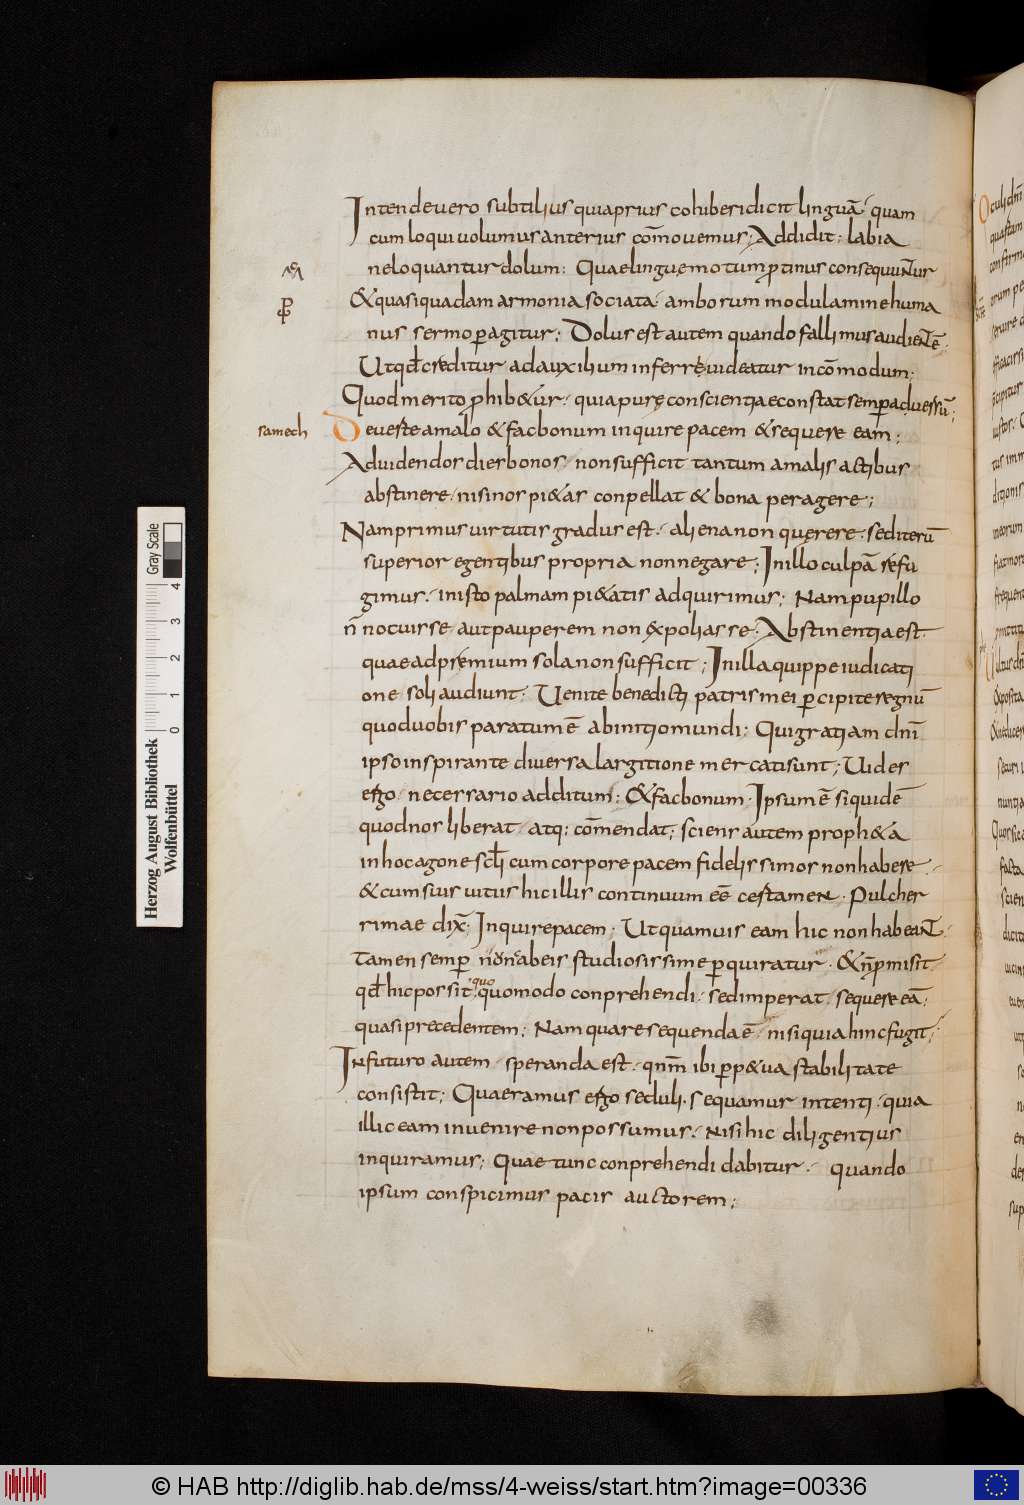 Intende vero subtilius quia prius cohiberi dicit linguā quam
cum loqui volumus anterius cōmovemus; Addidit; labia
ne loquantur dolum: Quae linguę motum ꝓtinus consequuntur
&quasi quadam armonia sociata amborum modulamine huma
nus sermo ꝑagitur; Dolus est autem quando fallimus audientē
Ut qđ creditur ad auxilium inferre videatur incōmodum;
Quod merito ꝓhib&ur quia purę conscientiae constat semꝑ adversū;
samech
Deverte a malo & fac bonum inquire pacem & sequere eam;
Ad videndos dies bonos non sufficit tantum a malis actibus
abstinere nisi nos pi&as conpellat & bona peragere;
Nam primus virtutis gradus est aliena non quęrere sed iterū
superior egentibus propria non negare; In illo culpā refu
gimus in isto palmam pi&atis adquirimus; Nam pupillo
ñ nocuisse aut pauperem non expoliasse; Abstinentia est
quae ad premium sola non sufficit; In illa quippe iudicati
one soli audiunt Venite benedicti patris mei ꝑcipite regnū
quod vobis paratum ē ab initio mundi; Qui gratiam dn̄i
ipso inspirante diversa largitione mercati sunt; Vides
ergo necessario additum; & fac bonum Ipsum ē siquidē
quod nos liberat atq; cōmendat; sciens autem proph&a
in hoc agone scłi cum corpore pacem fidelissimos non habere
& cum suis vitiis hic illis continuum eē certamen Pulcher
rimae dix̄ Inquire pacem; Ut quamvis eam hic non habeant
tamen semꝑ studiosissime ꝑquiratur & ñ ꝓmisit
qđ hic possit quo
quomodo conprehendi; sed imperat sequere eā;
quasi precedentem; Nam quare sequenda ē nisi quia hinc fugit;
In futuro autem speranda est qnm̄ ibi ꝑp&ua stabilitate
consistit; Quaeramus ergo seduli sequamur intenti quia
illic eam invenire non possumus Nisi hic diligentius
inquiramus; Quae tunc conprehendi dabitur quando
ipsum conspicimus pacis auctorem;
Herzog August Bibliothek
Wolfenbüttel
Gray Scale
0 1 2 3 4
© HAB http://diglib.hab.de/mss/4-weiss/start.htm?image=00336